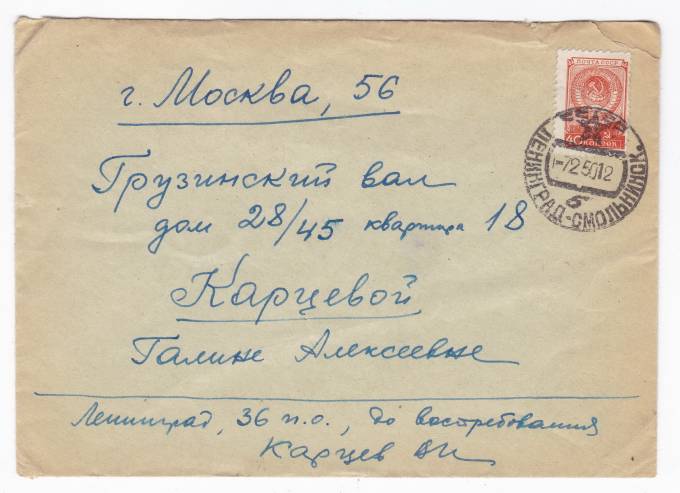 г. Москва, 56
Грузинский вал
дом 28/45 квартира 18
Карцевой
Галине Алексеевне
Ленинград, 36 п.о., до востребования
Карцев
ПОЧТА СССР
40 КОПЕЕК
ЛЕНИНГРАД-СМОЛЬНИНСК.
-7 2 50 12
б